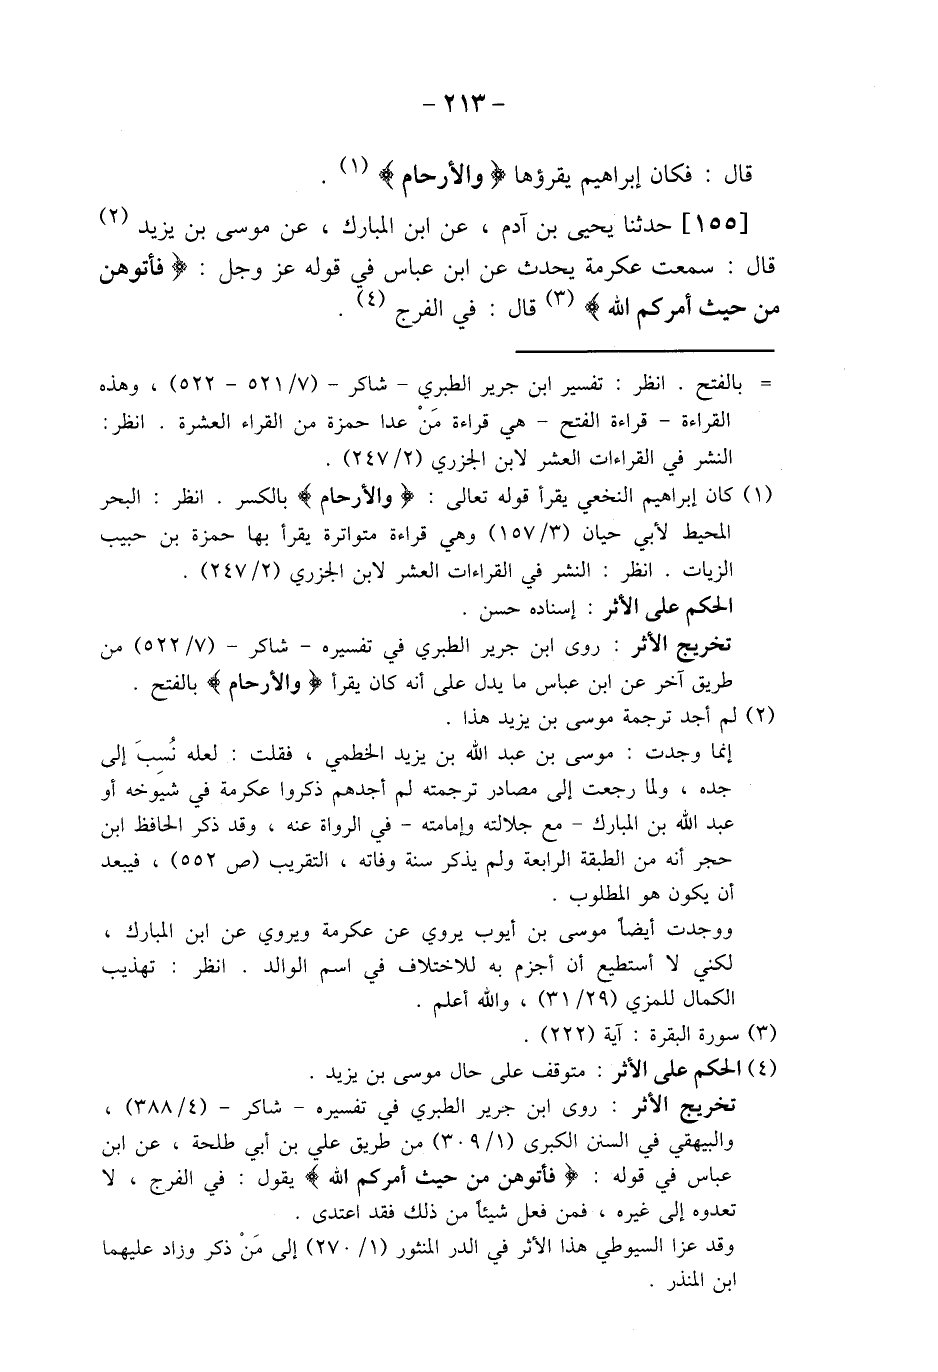 - ٢١٣ -
قال : فكان إبراهيم يقرؤها ﴿ والأرحام ﴾ (١) .
[١٥٥] حدثنا يحيى بن آدم ، عن ابن المبارك ، عن موسى بن يزيد (٢)
قال : سمعت عكرمة يحدث عن ابن عباس في قوله عز وجل : ﴿ فأتوهن
من حيث أمركم الله ﴾ (٣) قال : في الفرج (٤) .
= بالفتح . انظر : تفسير ابن جرير الطبري - شاكر - (٥٢١/٧ - ٥٢٢) ، وهذه
القراءة - قراءة الفتح - هي قراءة مَنْ عدا حمزة من القراء العشرة . انظر:
النشر في القراءات العشر لابن الجزري (٢٤٧/٢) .
(١) كان إبراهيم النخعي يقرأ قوله تعالى : ﴿ والأرحام ﴾ بالكسر . انظر : البحر
المحيط لأبي حيان (١٥٧/٣) وهي قراءة متواترة يقرأ بها حمزة بن حبيب
الزيات . انظر : النشر في القراءات العشر لابن الجزري (٢٤٧/٢) .
الحكم على الأثر : إسناده حسن .
تخريج الأثر : روى ابن جرير الطبري في تفسيره - شاكر - (٥٢٢/٧) من
طريق آخر عن ابن عباس ما يدل على أنه كان يقرأ ﴿ والأرحام ﴾ بالفتح .
(٢) لم أجد ترجمة موسى بن يزيد هذا .
إنما وجدت : موسى بن عبد الله بن يزيد الخطمي ، فقلت : لعله نُسِبَ إلى
جده ، ولما رجعت إلى مصادر ترجمته لم أجدهم ذكروا عكرمة في شيوخه أو
عبد الله بن المبارك - مع جلالته وإمامته - في الرواة عنه ، وقد ذكر الحافظ ابن
حجر أنه من الطبقة الرابعة ولم يذكر سنة وفاته ، التقريب (ص ٥٥٢) ، فيبعد
أن يكون هو المطلوب .
ووجدت أيضاً موسى بن أيوب يروي عن عكرمة ويروي عن ابن المبارك ،
لكني لا أستطيع أن أجزم به للاختلاف في اسم الوالد . انظر : تهذيب
الكمال للمزي (٣١/٢٩) ، والله أعلم .
(٣) سورة البقرة : آية (٢٢٢) .
(٤) الحكم على الأثر : متوقف على حال موسى بن يزيد .
تخريج الأثر : روى ابن جرير الطبري في تفسيره - شاكر - (٣٨٨/٤) ،
والبيهقي في السنن الكبرى (٣٠٩/١) من طريق علي بن أبي طلحة ، عن ابن
عباس في قوله : ﴿ فأتوهن من حيث أمركم الله ﴾ يقول : في الفرج ، لا
تعدوه إلى غيره ، فمن فعل شيئاً من ذلك فقد اعتدى .
وقد عزا السيوطي هذا الأثر في الدر المنثور (٢٧٠/١) إلى مَنْ ذكر وزاد عليهما
ابن المنذر .